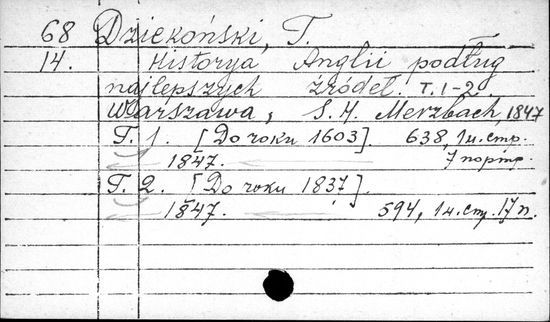 68 Dziekoński, T.
14. Historya Anglii podług
najlepszych źródeł. T. 1-2.
Warszawa, S. H. Merzbach, 1847
T. 1. [Do roku 1603]. 638, 1 н. стр.
1847. 7 портр.
T. 2. [Do roku 1837].
1847. 594, 1 н. стр. 17 п.